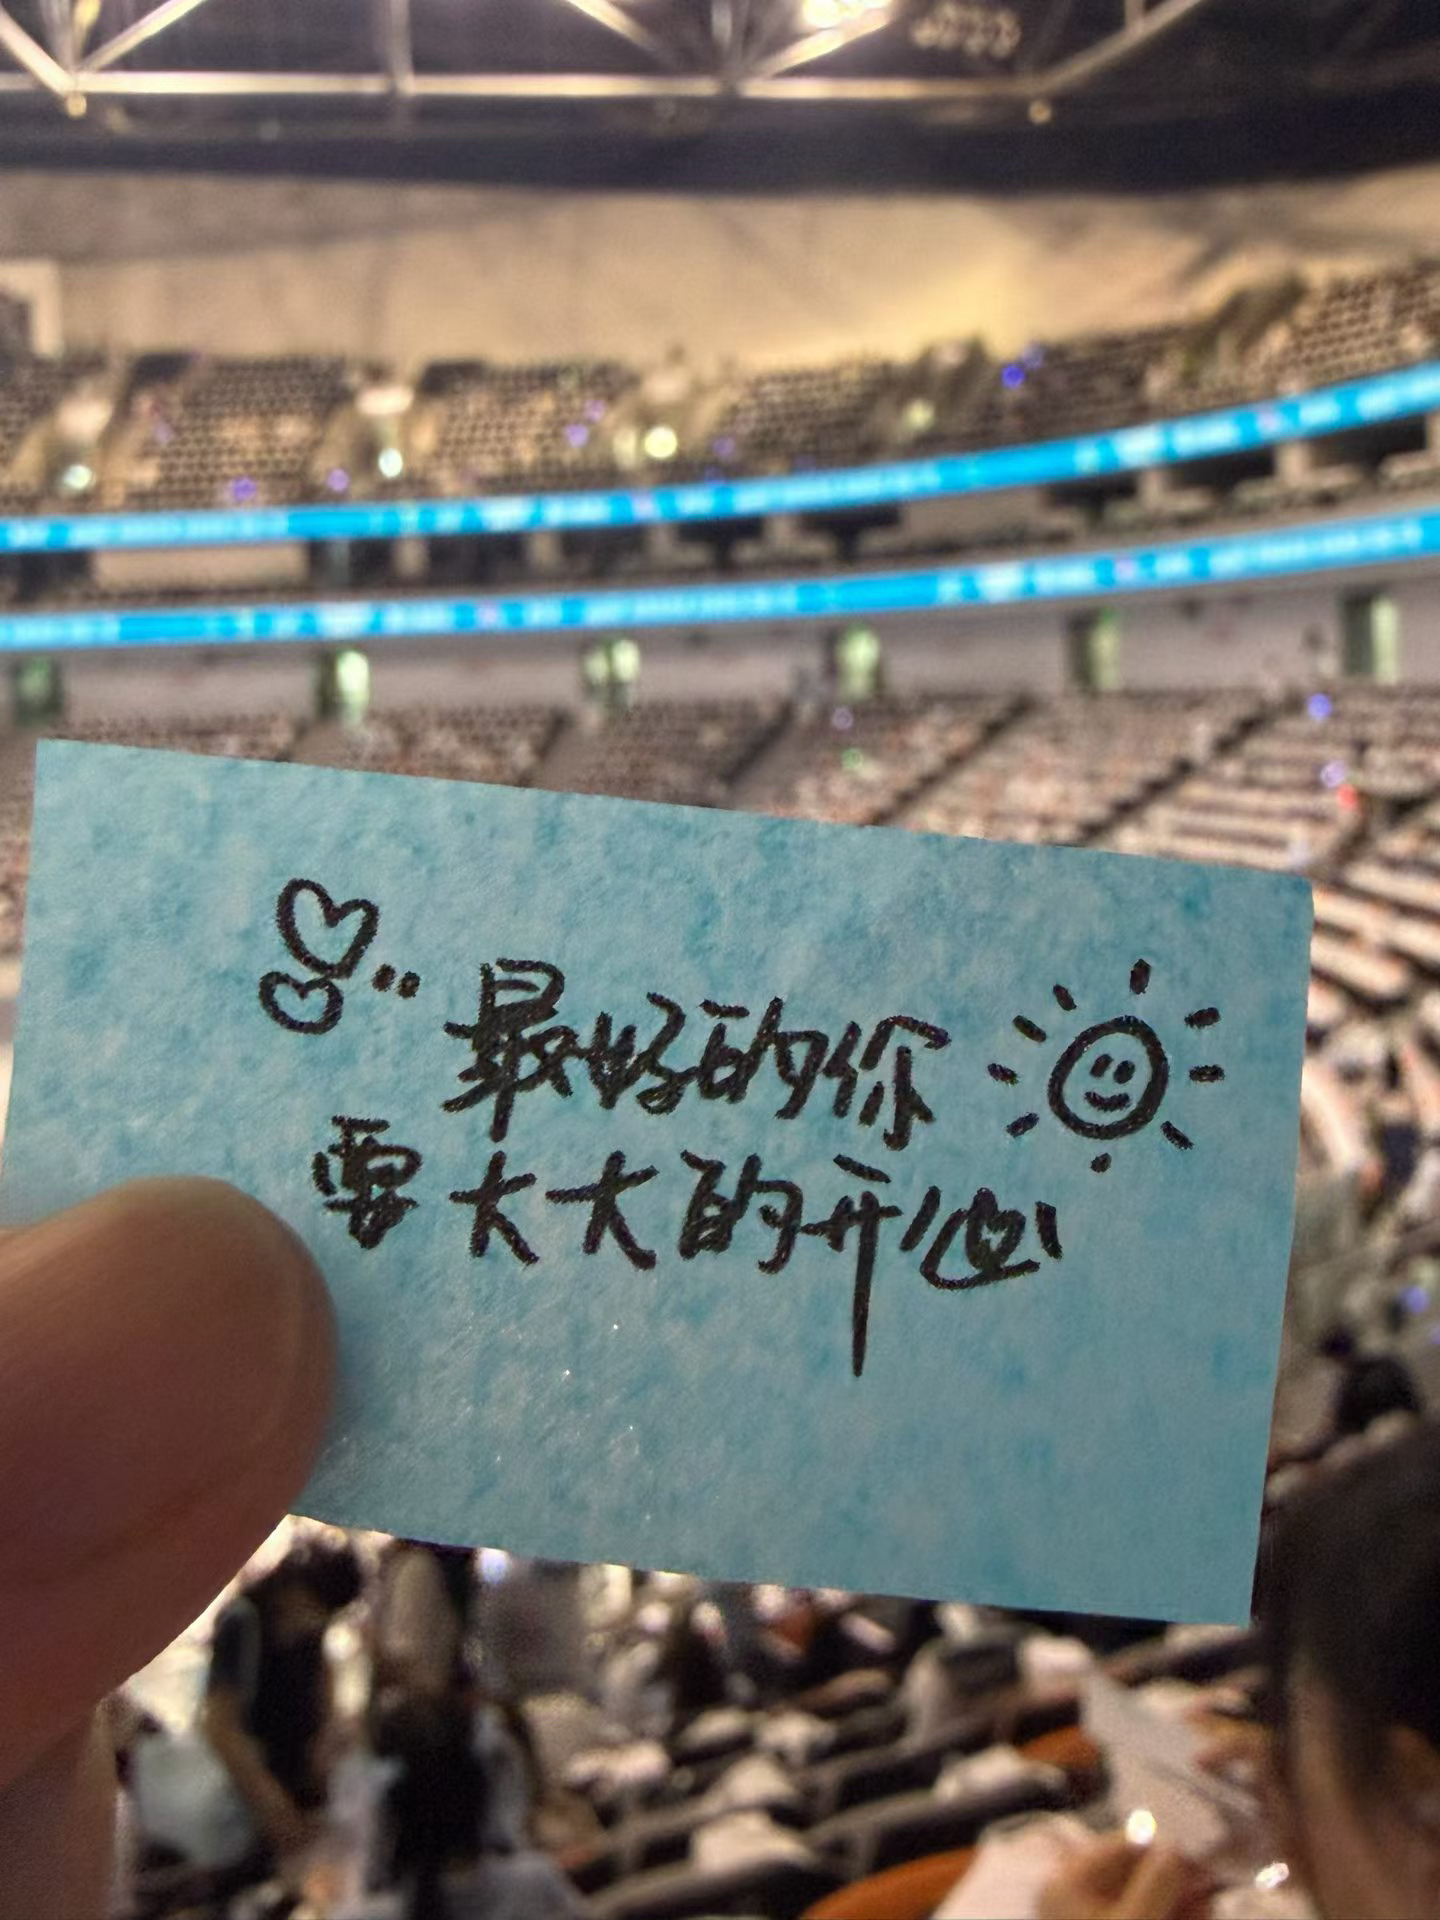 最好的你
要大大的开心